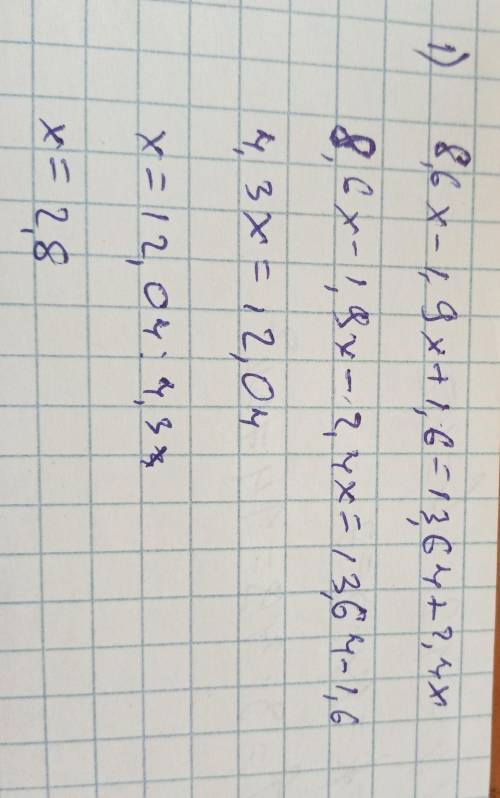 1) 8,6x-1,9x+1,6=13,64+2,4x
8,6x-1,9x-2,4x=13,64-1,6
4,3x=12,04
x=12,04:4,3
x=2,8